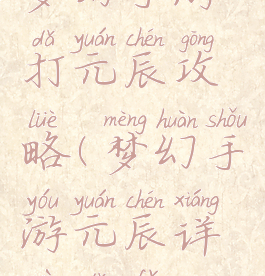 dǎ yuán chén gōng
打元辰攻
lüè mèng huàn shǒu
略(梦幻手
yóu yuán chén xiáng
游元辰详